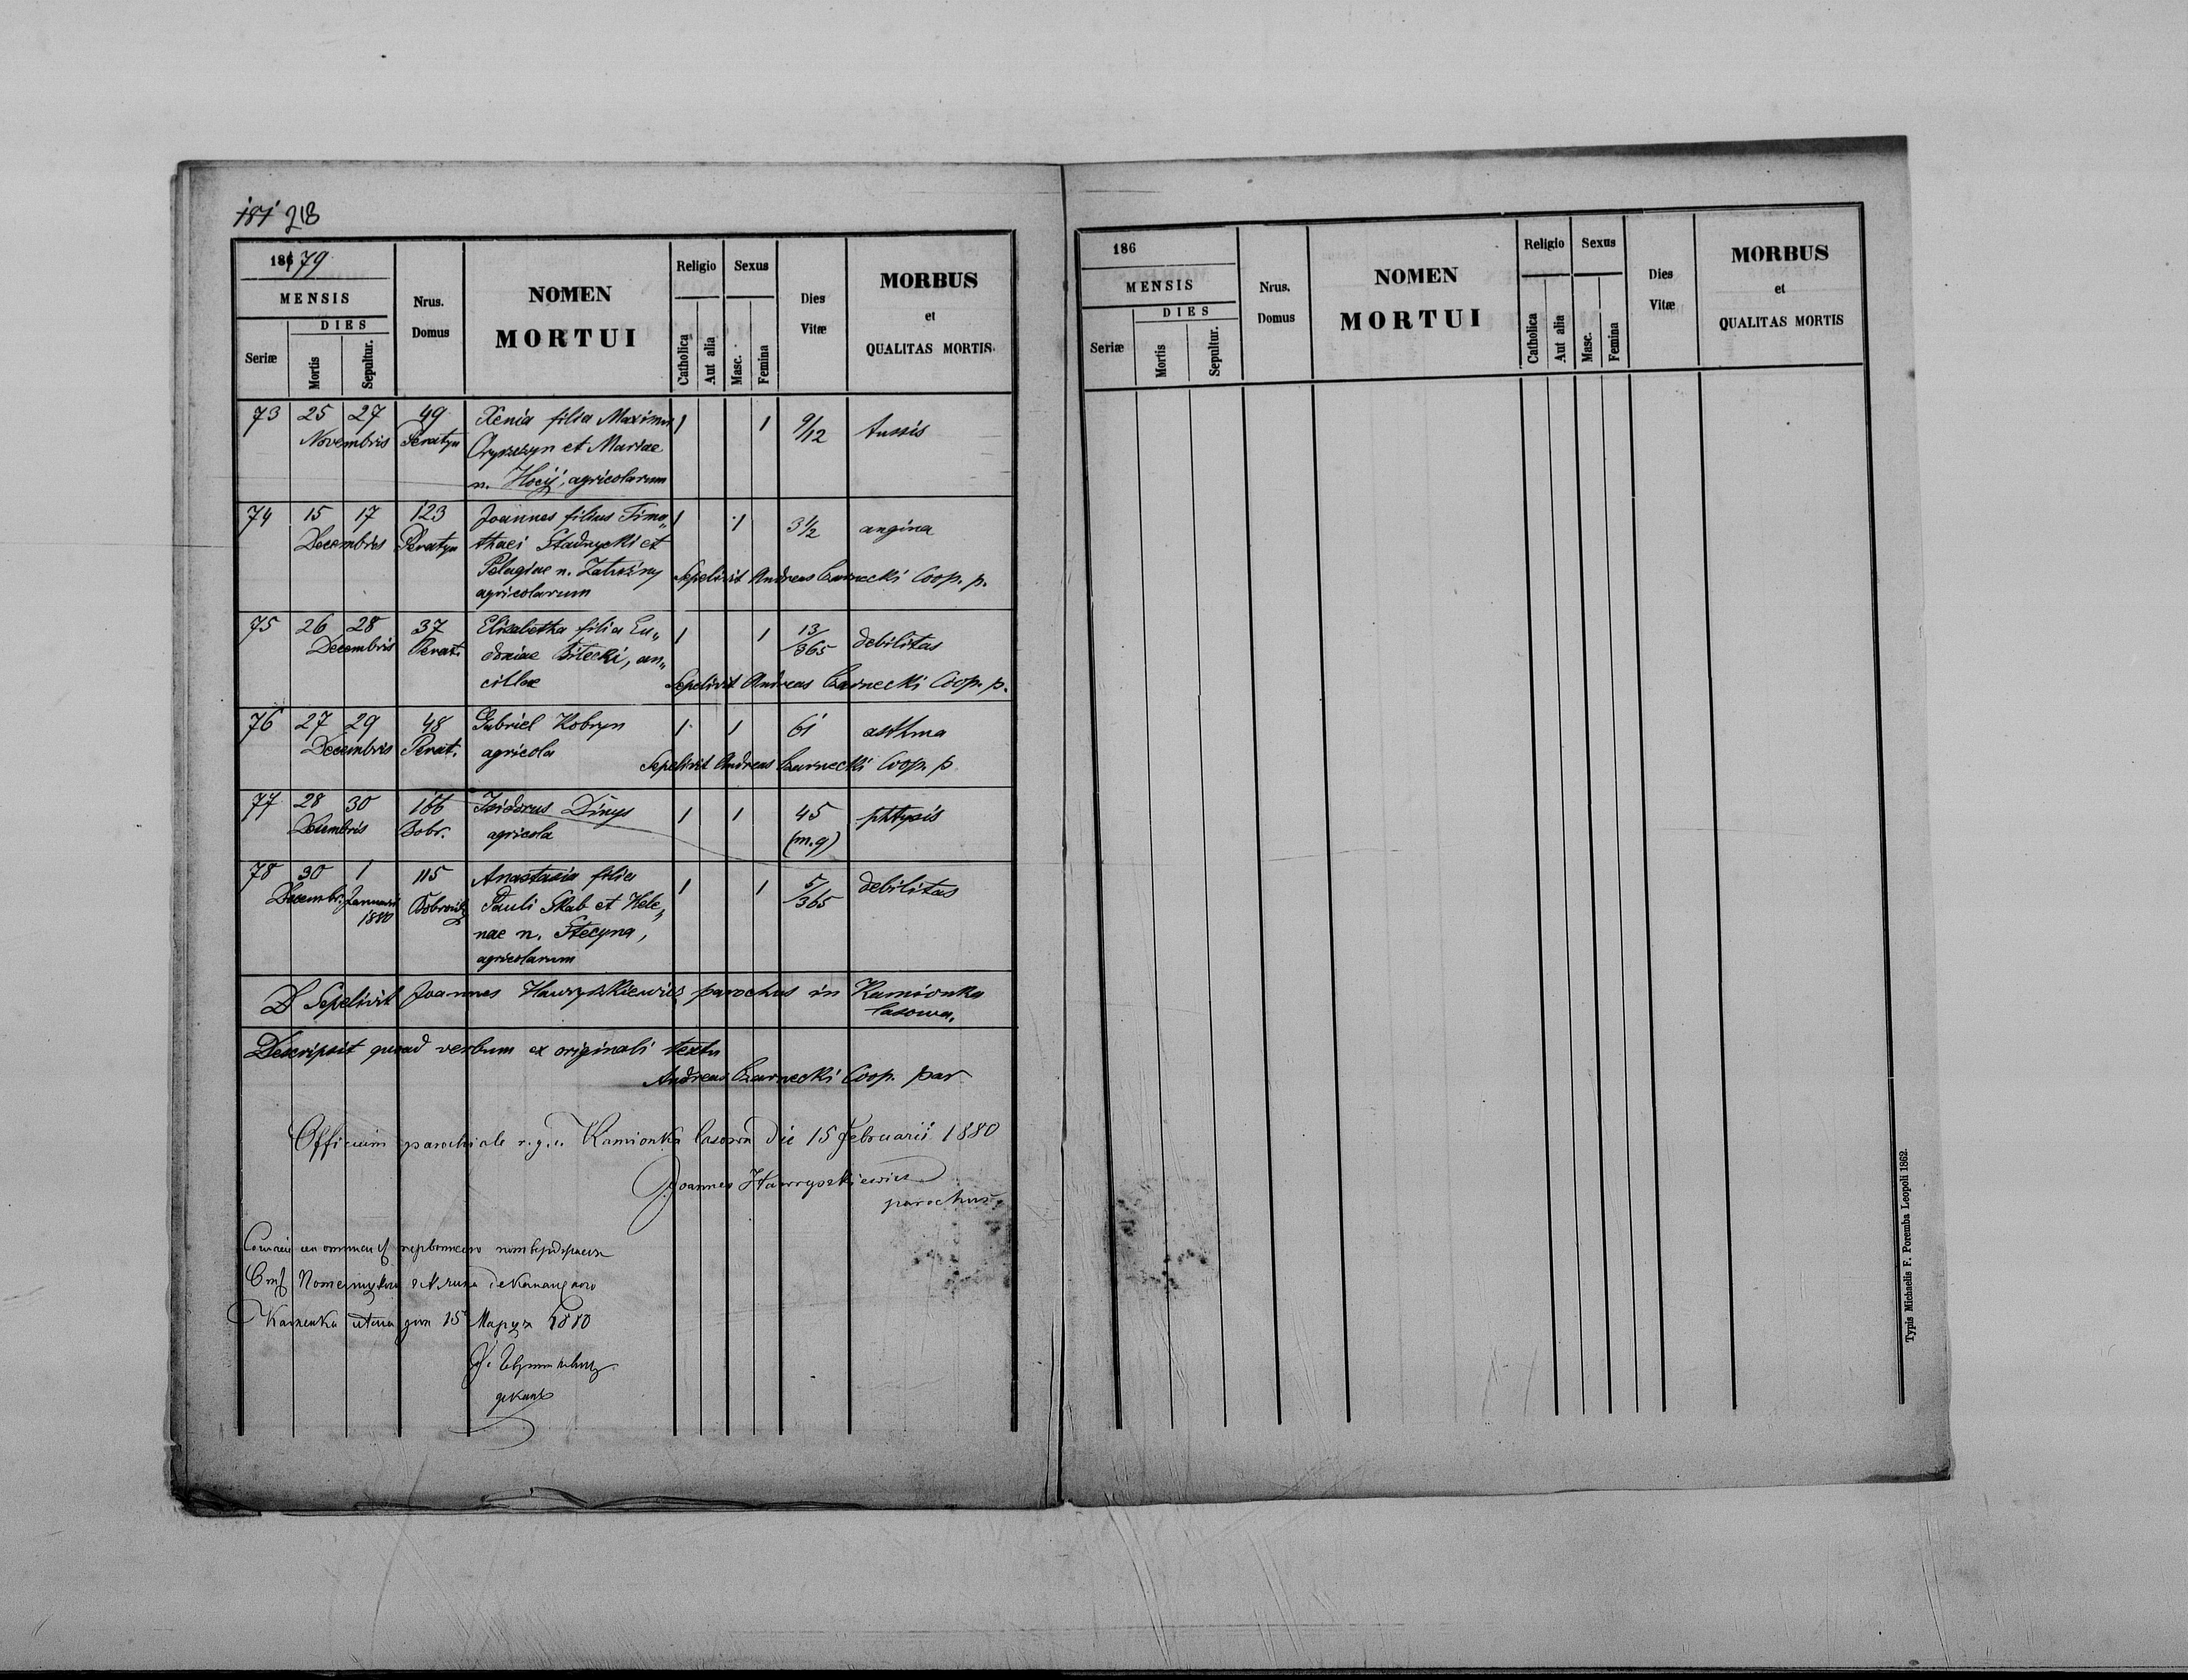 181 213
1879
MENSIS
DIES
Seriæ Mortis Sepultur.
Nrus. Domus
NOMEN
MORTUI
Religio Sexus
Catholica Aut alia Masc. Femina
Dies Vitæ
MORBUS
et
QUALITAS MORTIS.
73 25 27 49 Xenia filia Maximi 1 1 9/12 tussis
Novembris Peratyn et Mariae
n. agricolarum
74 15 17 123 Joannes filius Timo„ 1 1 3 1/2 angina
Decembris Peratyn thaei Stadnycki et
Pelagiae n. Sepelivit Andreas Czarnecki Coop. p.
agricolarum
75 26 28 37 Elisabetha filia Eu„ 1 1 13/365 debilitas
Decembris Perat. doxiae Bilecki, an„
cillae Sepelivit Andreas Czarnecki Coop. p.
76 27 29 48 Gabriel Kobryn 1 1 61 asthma
Decembris Perat. agricola
Sepelivit Andreas Czarnecki Coop. p
77 28 30 166 Isidorus Dinys 1 1 45 phtysis
Decembris Dobr. agricola (m.g)
78 30 1 115 Anastasia filia 1 1 5/365 debilitas
Decembr. Januarii Pauli Skab et Hele„
1880
nae n. Stecyna,
agricolarum
Sepelivit Joannes Hawryszkiewicz parochus in Kamionka
lasowa.
Descripsit quoad verbum ex originali textu
Andreas Czarnecki Coop. par
Officium parochiale r. g. c. Kamionka lasowa die 15 Februarii 1880
Joannes Hawryszkiewicz
parochus
Каменка дня 15 Марта 1880
деканъ
186
MENSIS
DIES
Seriæ Mortis Sepultur.
Nrus. Domus
NOMEN
MORTUI
Religio Sexus
Catholica Aut alia Masc. Femina
Dies Vitæ
MORBUS
et
QUALITAS MORTIS
Typis Michaelis F. Poremba Leopoli 1862.